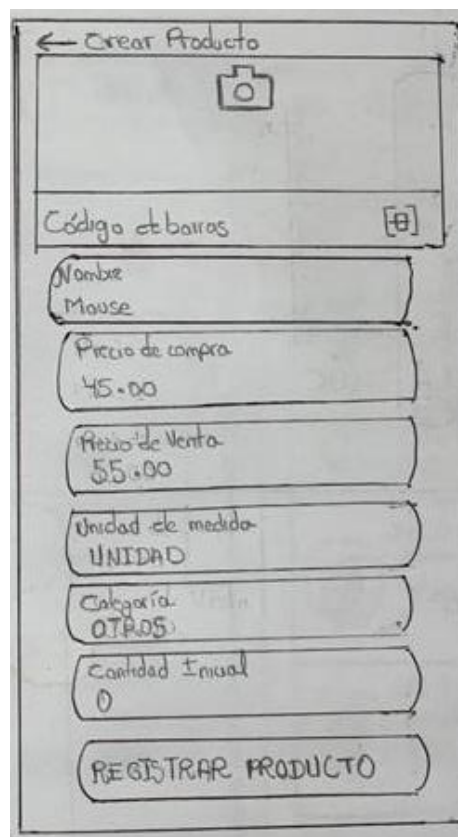 ← Crear Producto
Código de barras
Nombre
Mouse
Precio de compra
45.00
Precio de Venta
55.00
Unidad de medida
UNIDAD
Categoría
OTROS
Cantidad Inicial
0
REGISTRAR PRODUCTO